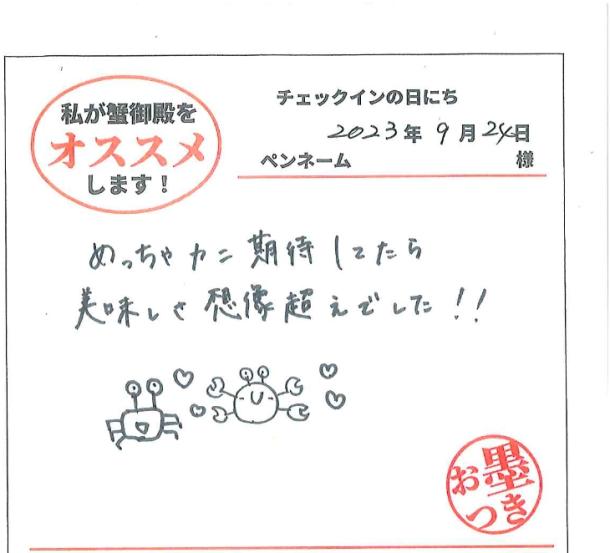 私が蟹御殿を
オススメ
します！
チェックインの日にち
2023年 9月 24日
ペンネーム 様
めっちゃカニ期待してたら
美味しさ想像超えでした!!
お墨
つき